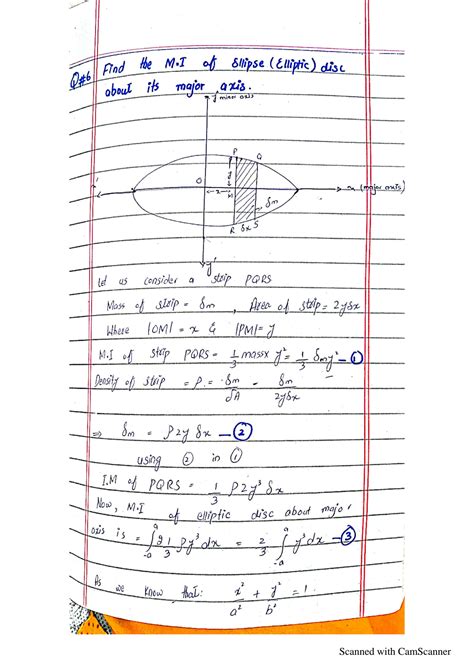 Q#6 Find the M.I of Ellipse (Elliptic) disc
about its major axis.
y minor axis
P
Q
O
x
y
M
x (major axis)
δm
R δx S
y'
Let us consider a strip PQRS
Mass of strip = δm , Area of strip = 2yδx
Where |OM| = x & |PM| = y
M.I of strip PQRS = 1/3 mass x y² = 1/3 δm y² — ①
Density of strip = ρ = δm/δA = δm/2yδx
⇒ δm = ρ2y δx — ②
using ② in ①
I.M of PQRS = 1/3 ρ2y³ δx
Now, M.I of elliptic disc about major
axis is = ∫₋ₐᵃ 2 1/3 ρy³dx = 2/3 ∫₋ₐᵃ y³dx — ③
As we know that: x²/a² + y²/b² = 1
Scanned with CamScanner